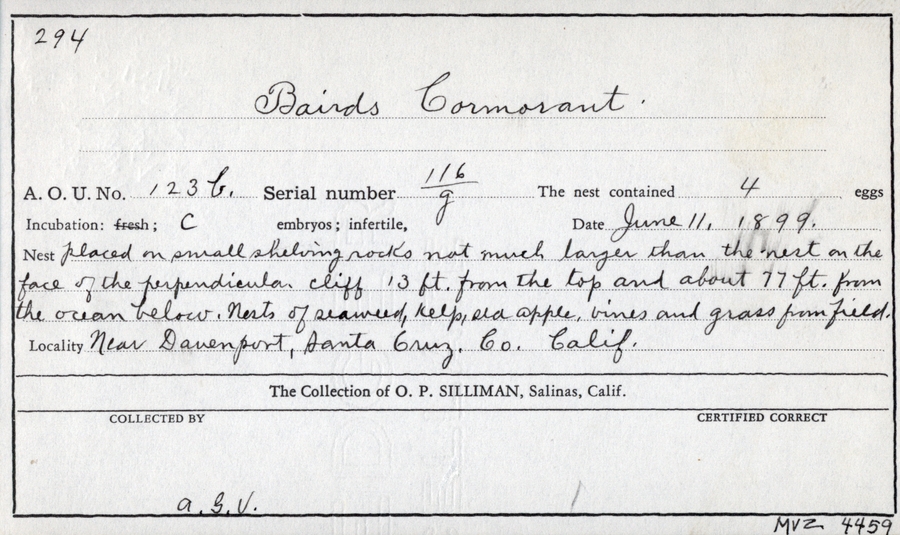 294
Bairds Cormorant.
A. O. U. No. 123b. Serial number 116/g The nest contained 4 eggs
Incubation: fresh; C embryos; infertile, Date June 11, 1899.
Nest placed on small shelving rocks not much larger than the nest on the
face of the perpendicular cliff 13 ft. from the top and about 77 ft. from
the ocean below. Nests of seaweed, kelp, sea apple, vines and grass from field.
Locality Near Davenport, Santa Cruz. Co. Calif.
The Collection of O. P. SILLIMAN, Salinas, Calif.
COLLECTED BY CERTIFIED CORRECT
a. G. V.
MVZ 4459